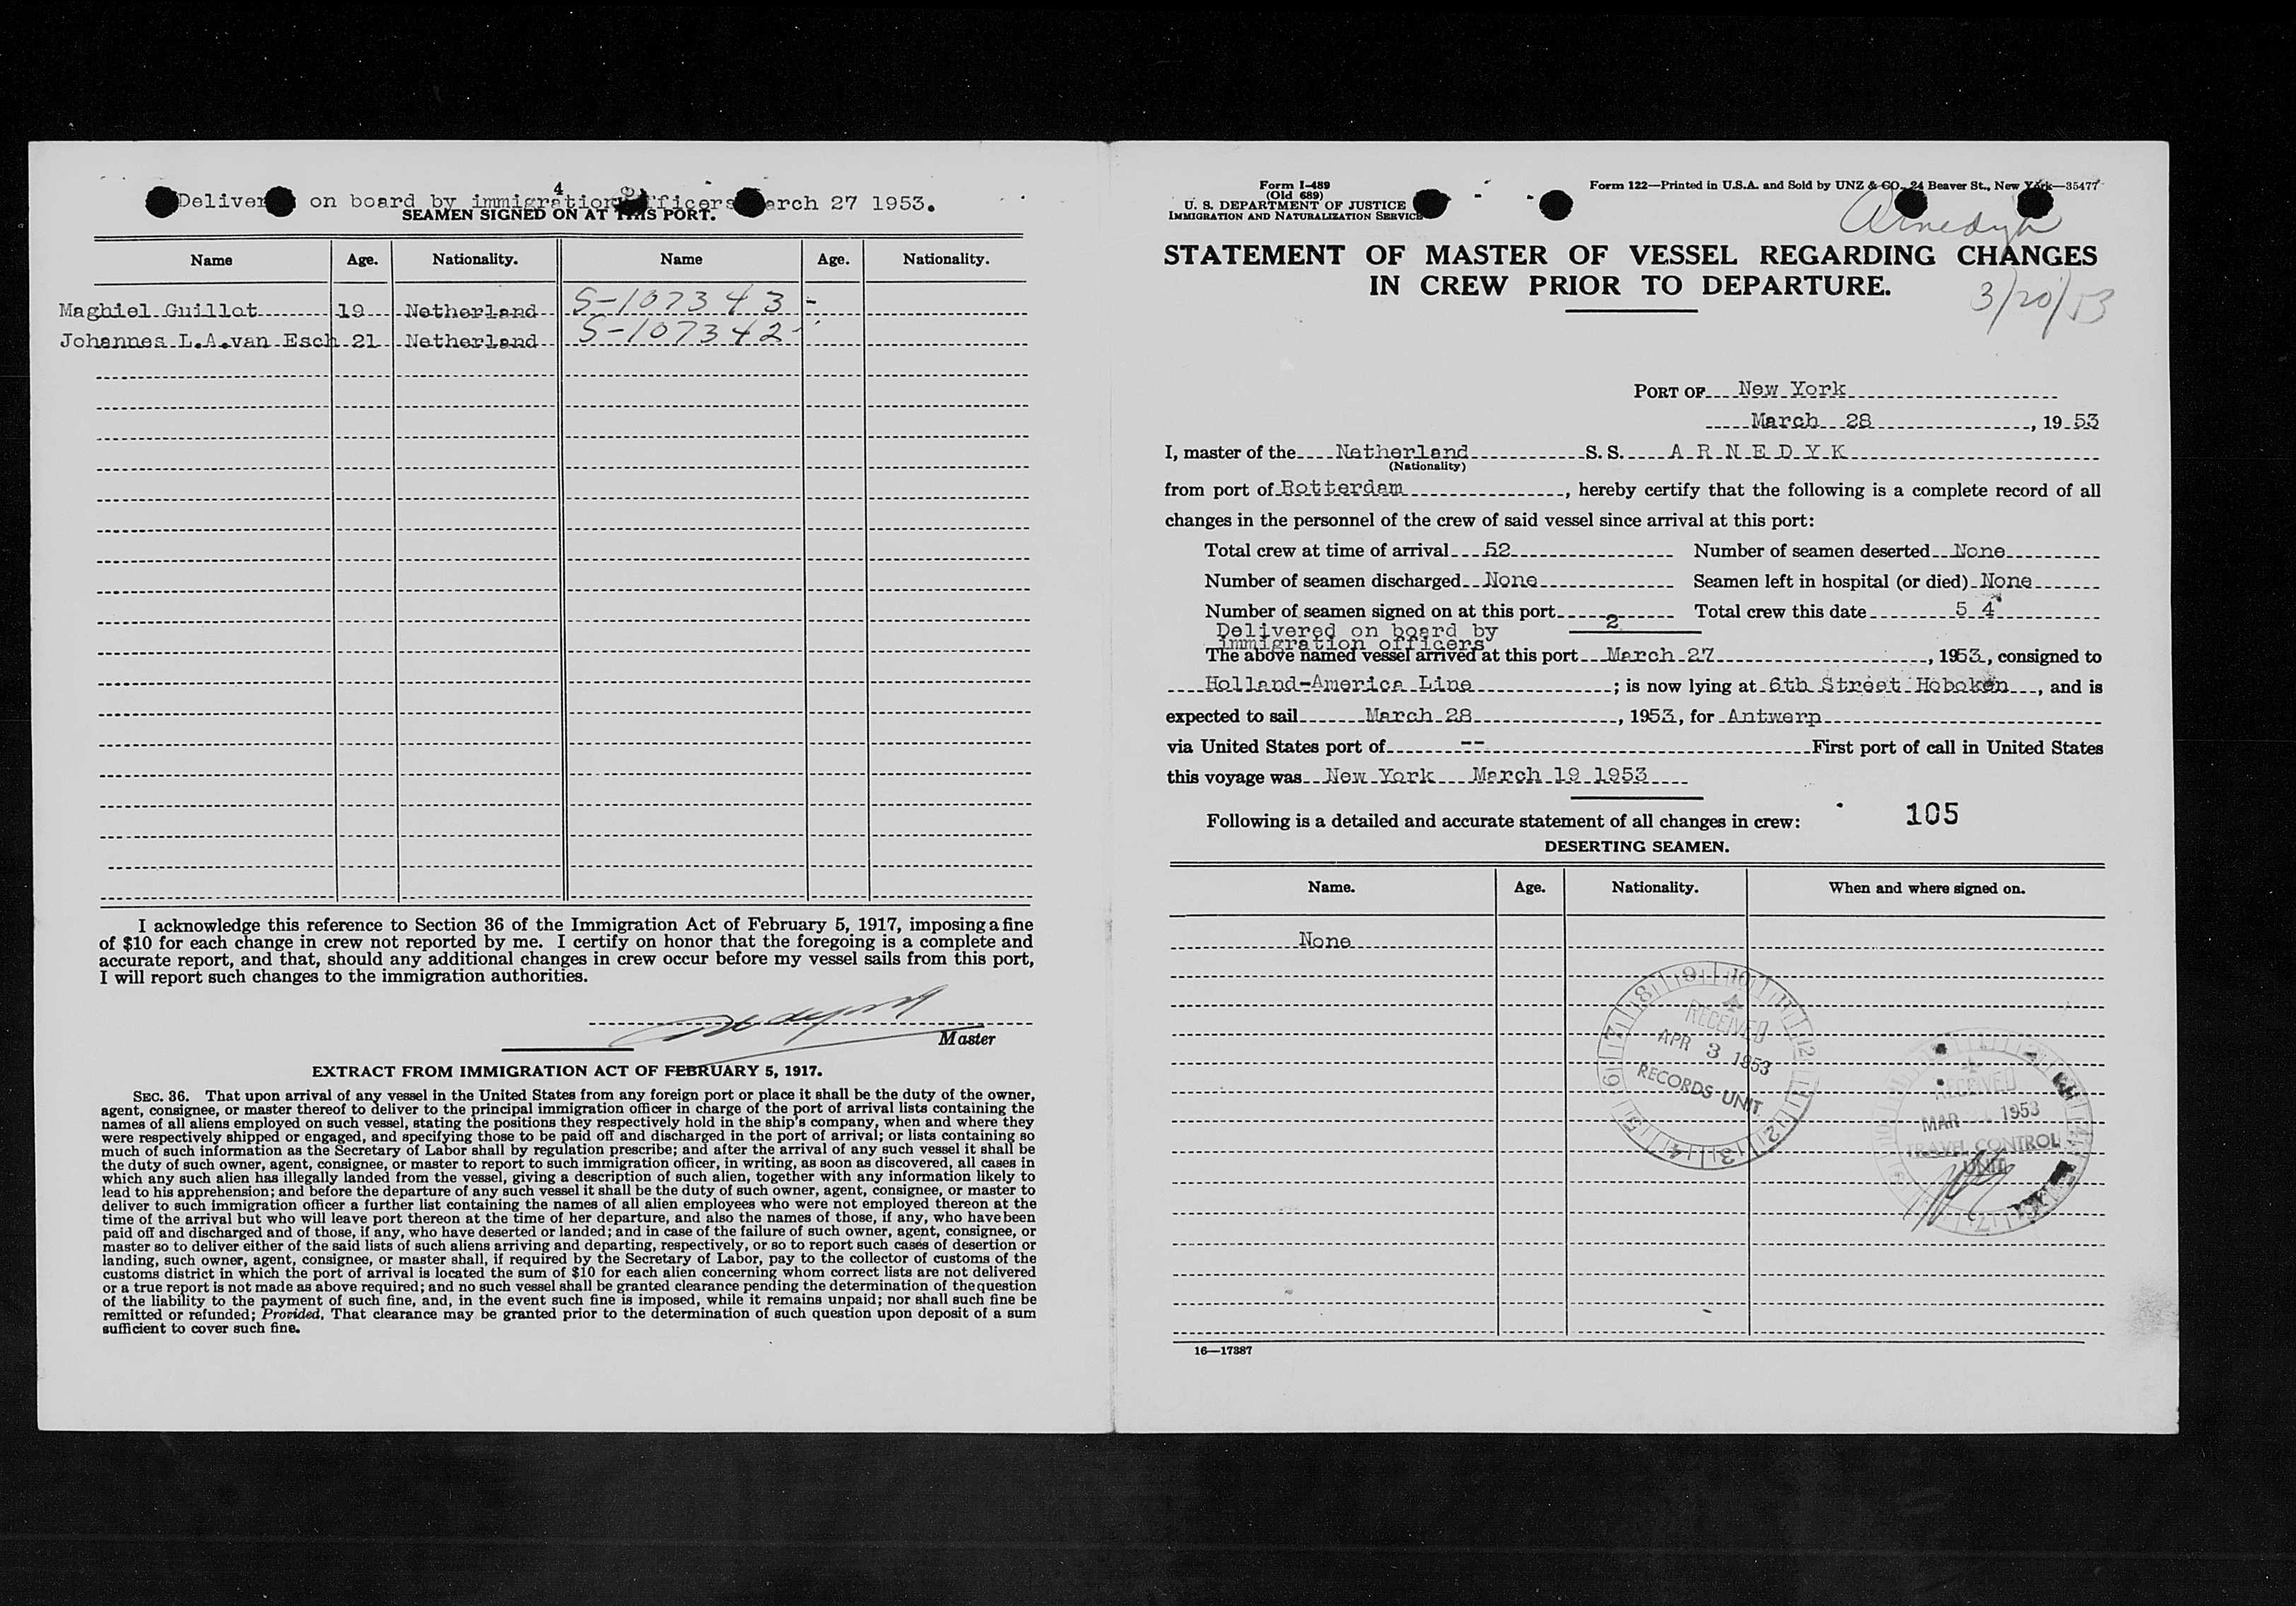 4
Delivered on board by immigration officers March 27 1953.
SEAMEN SIGNED ON AT THIS PORT.
Name Age. Nationality. Name Age. Nationality.
Maghiel Guillot 19 Netherland S-107343 -
Johannes L.A.van Esch 21 Netherland S-107342 -
I acknowledge this reference to Section 36 of the Immigration Act of February 5, 1917, imposing a fine
of $10 for each change in crew not reported by me. I certify on honor that the foregoing is a complete and
accurate report, and that, should any additional changes in crew occur before my vessel sails from this port,
I will report such changes to the immigration authorities.
Master
EXTRACT FROM IMMIGRATION ACT OF FEBRUARY 5, 1917.
SEC. 36. That upon arrival of any vessel in the United States from any foreign port or place it shall be the duty of the owner,
agent, consignee, or master thereof to deliver to the principal immigration officer in charge of the port of arrival lists containing the
names of all aliens employed on such vessel, stating the positions they respectively hold in the ship's company, when and where they
were respectively shipped or engaged, and specifying those to be paid off and discharged in the port of arrival; or lists containing so
much of such information as the Secretary of Labor shall by regulation prescribe; and after the arrival of any such vessel it shall be
the duty of such owner, agent, consignee, or master to report to such immigration officer, in writing, as soon as discovered, all cases in
which any such alien has illegally landed from the vessel, giving a description of such alien, together with any information likely to
lead to his apprehension; and before the departure of any such vessel it shall be the duty of such owner, agent, consignee, or master to
deliver to such immigration officer a further list containing the names of all alien employees who were not employed thereon at the
time of the arrival but who will leave port thereon at the time of her departure, and also the names of those, if any, who have been
paid off and discharged and of those, if any, who have deserted or landed; and in case of the failure of such owner, agent, consignee, or
master so to deliver either of the said lists of such aliens arriving and departing, respectively, or so to report such cases of desertion or
landing, such owner, agent, consignee, or master shall, if required by the Secretary of Labor, pay to the collector of customs of the
customs district in which the port of arrival is located the sum of $10 for each alien concerning whom correct lists are not delivered
or a true report is not made as above required; and no such vessel shall be granted clearance pending the determination of the question
of the liability to the payment of such fine, and, in the event such fine is imposed, while it remains unpaid; nor shall such fine be
remitted or refunded; Provided, That clearance may be granted prior to the determination of such question upon deposit of a sum
sufficient to cover such fine.
Form I-489
(Old 689)
U. S. DEPARTMENT OF JUSTICE
IMMIGRATION AND NATURALIZATION SERVICE
Form 122—Printed in U.S.A. and Sold by UNZ & CO., 24 Beaver St., New York—35477
Arnedyk
STATEMENT OF MASTER OF VESSEL REGARDING CHANGES
IN CREW PRIOR TO DEPARTURE.
3/20/53
PORT OF New York
March 28, 1953
I, master of the Netherland S. S. A R N E D Y K
(Nationality)
from port of Rotterdam, hereby certify that the following is a complete record of all
changes in the personnel of the crew of said vessel since arrival at this port:
Total crew at time of arrival 52 Number of seamen deserted None
Number of seamen discharged None Seamen left in hospital (or died) None
Number of seamen signed on at this port 2 Total crew this date 5 4
Delivered on board by
immigration officers
The above named vessel arrived at this port March 27, 1953, consigned to
Holland-America Line; is now lying at 6th Street Hoboken, and is
expected to sail March 28, 1953, for Antwerp
via United States port of -- First port of call in United States
this voyage was New York March 19 1953
Following is a detailed and accurate statement of all changes in crew: 105
DESERTING SEAMEN.
Name. Age. Nationality. When and where signed on.
None
RECEIVED
APR 3 1953
RECORDS UNIT
RECEIVED
MAR 1953
TRAVEL CONTROL
UNIT
16—17387